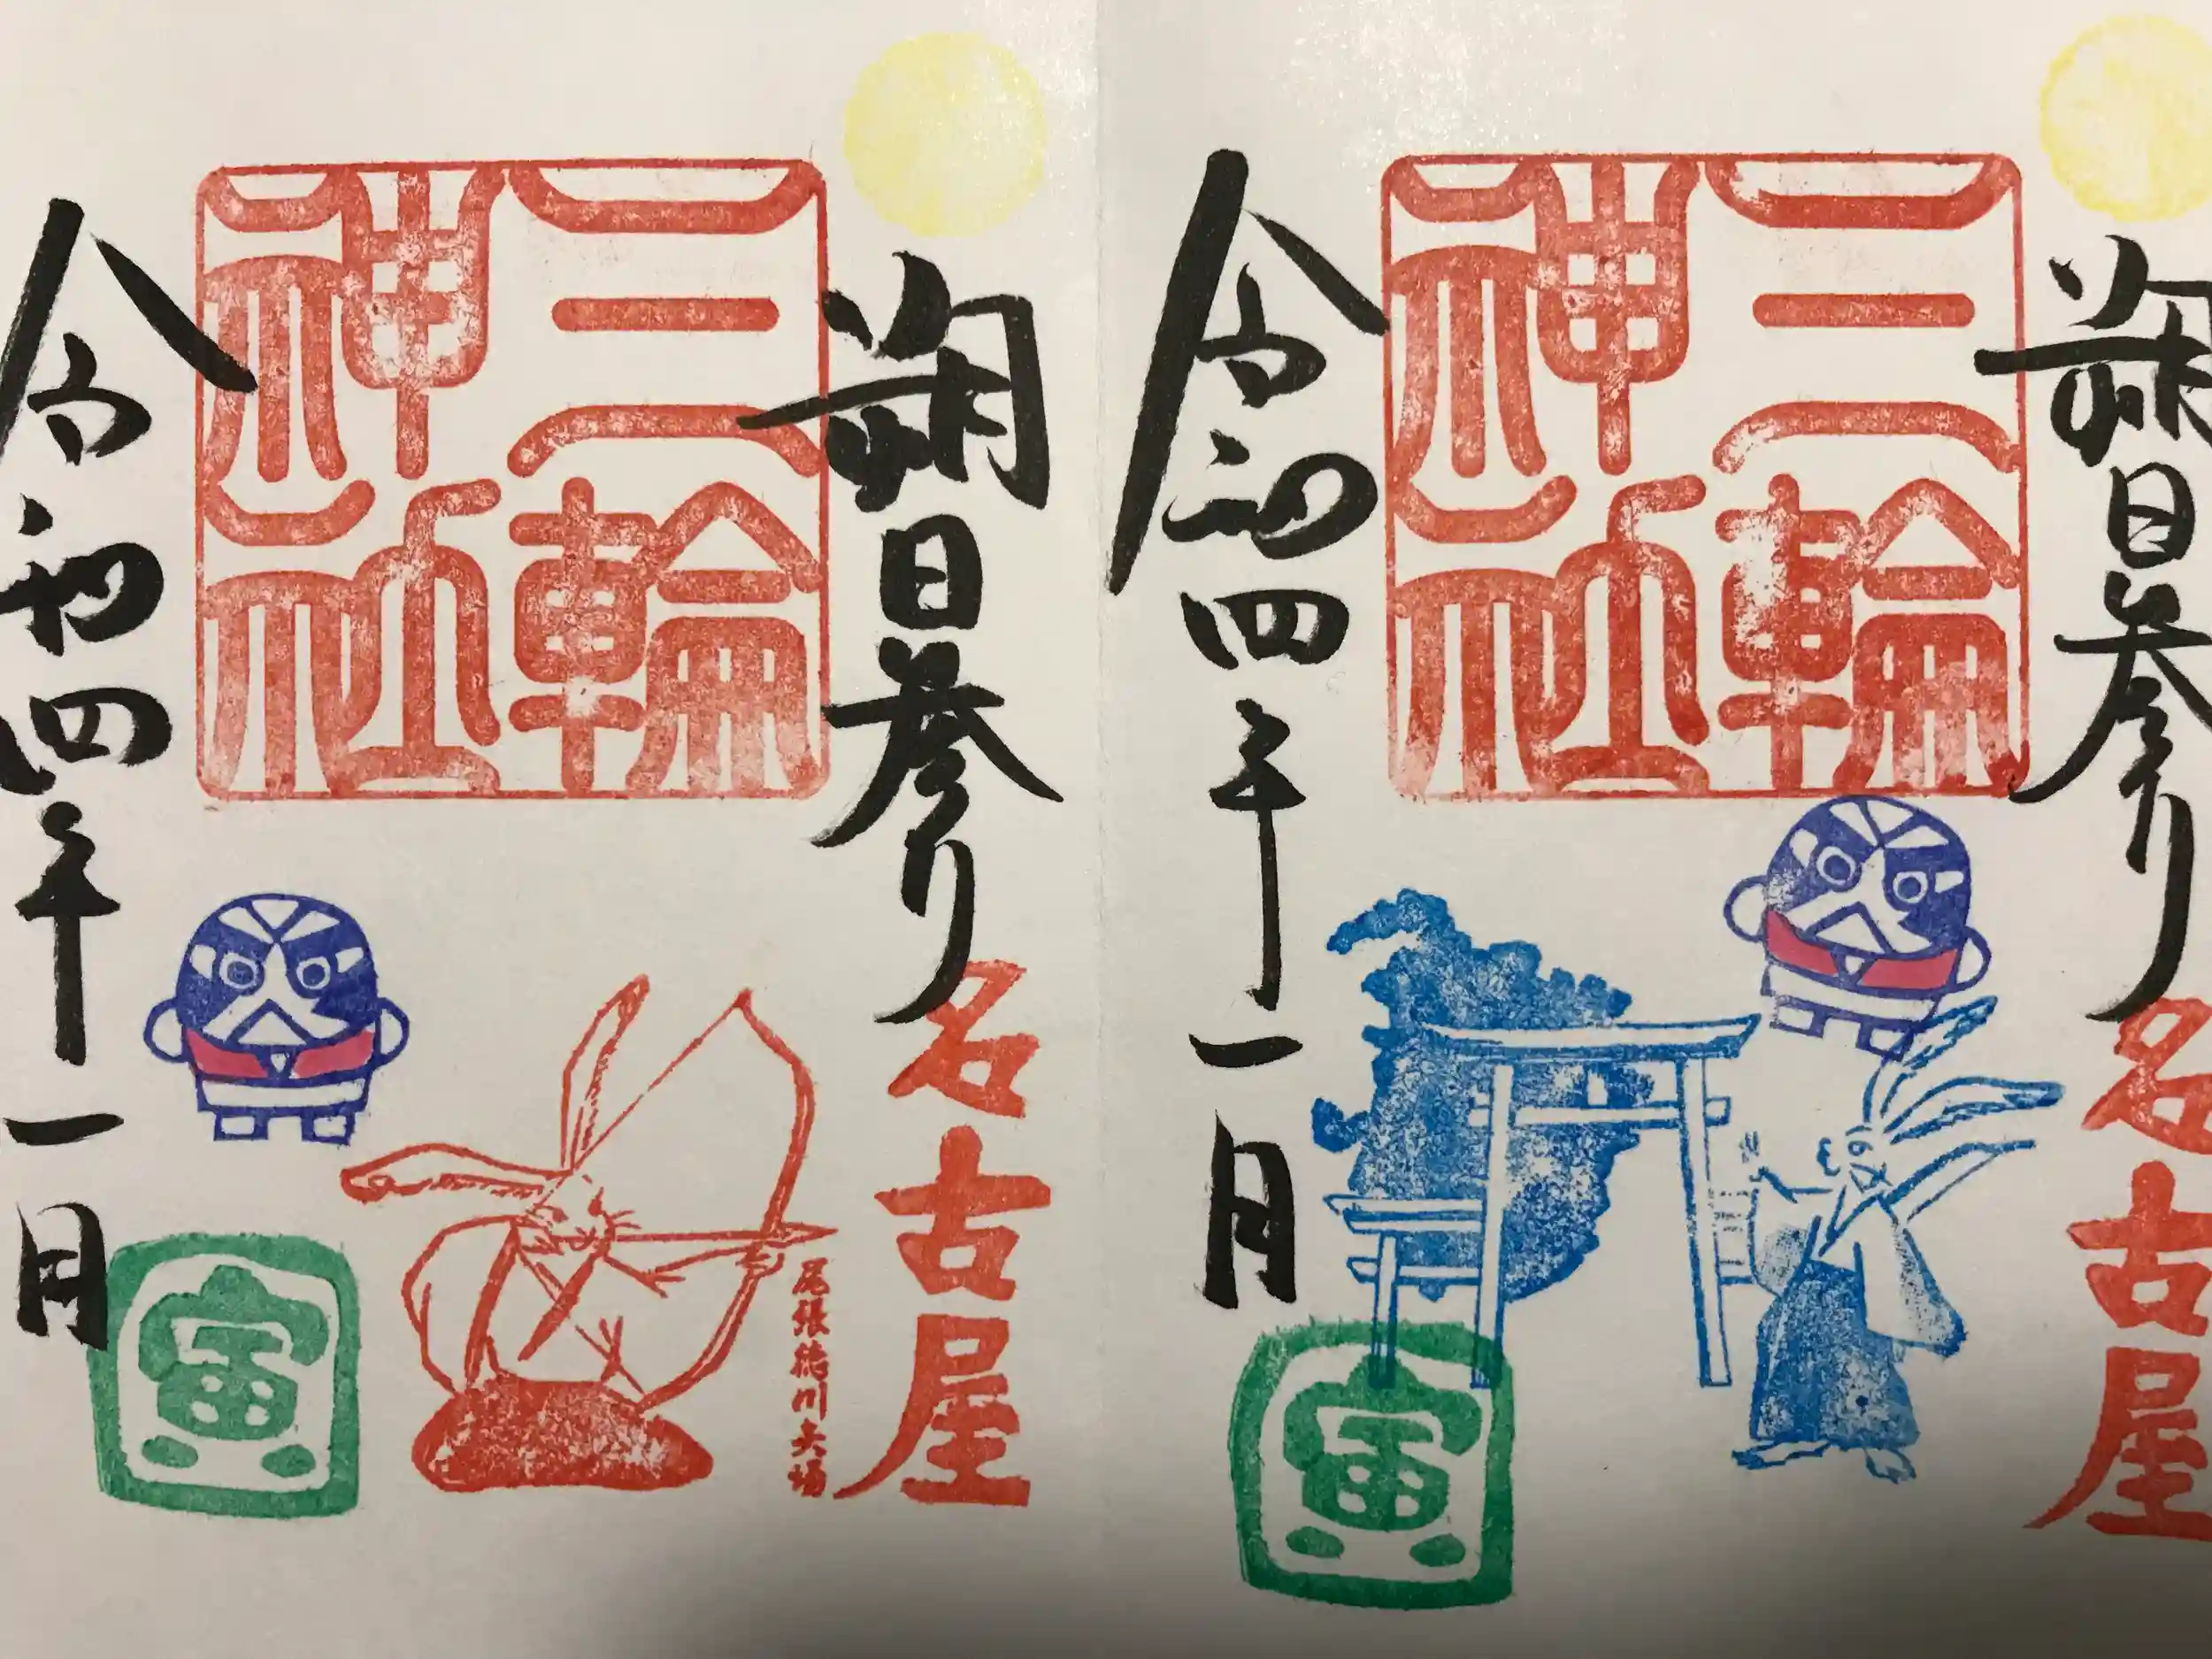 朔日参り
名古屋
三輪
神社
令和四年一月
寅
朔日参り
名古屋
尾張徳川矢場
三輪
神社
令和四年一月
寅